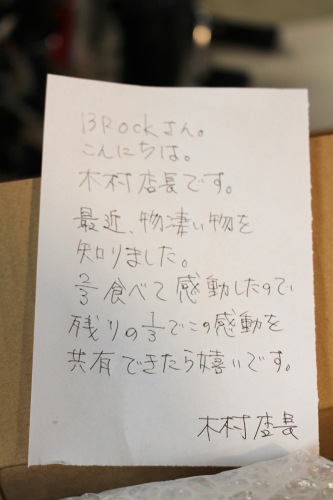 BRockさん。
こんにちは。
木村店長です。
最近、物凄い物を
知りました。
2/3食べて感動したので
残りの1/3でこの感動を
共有できたら嬉いです。
木村店長